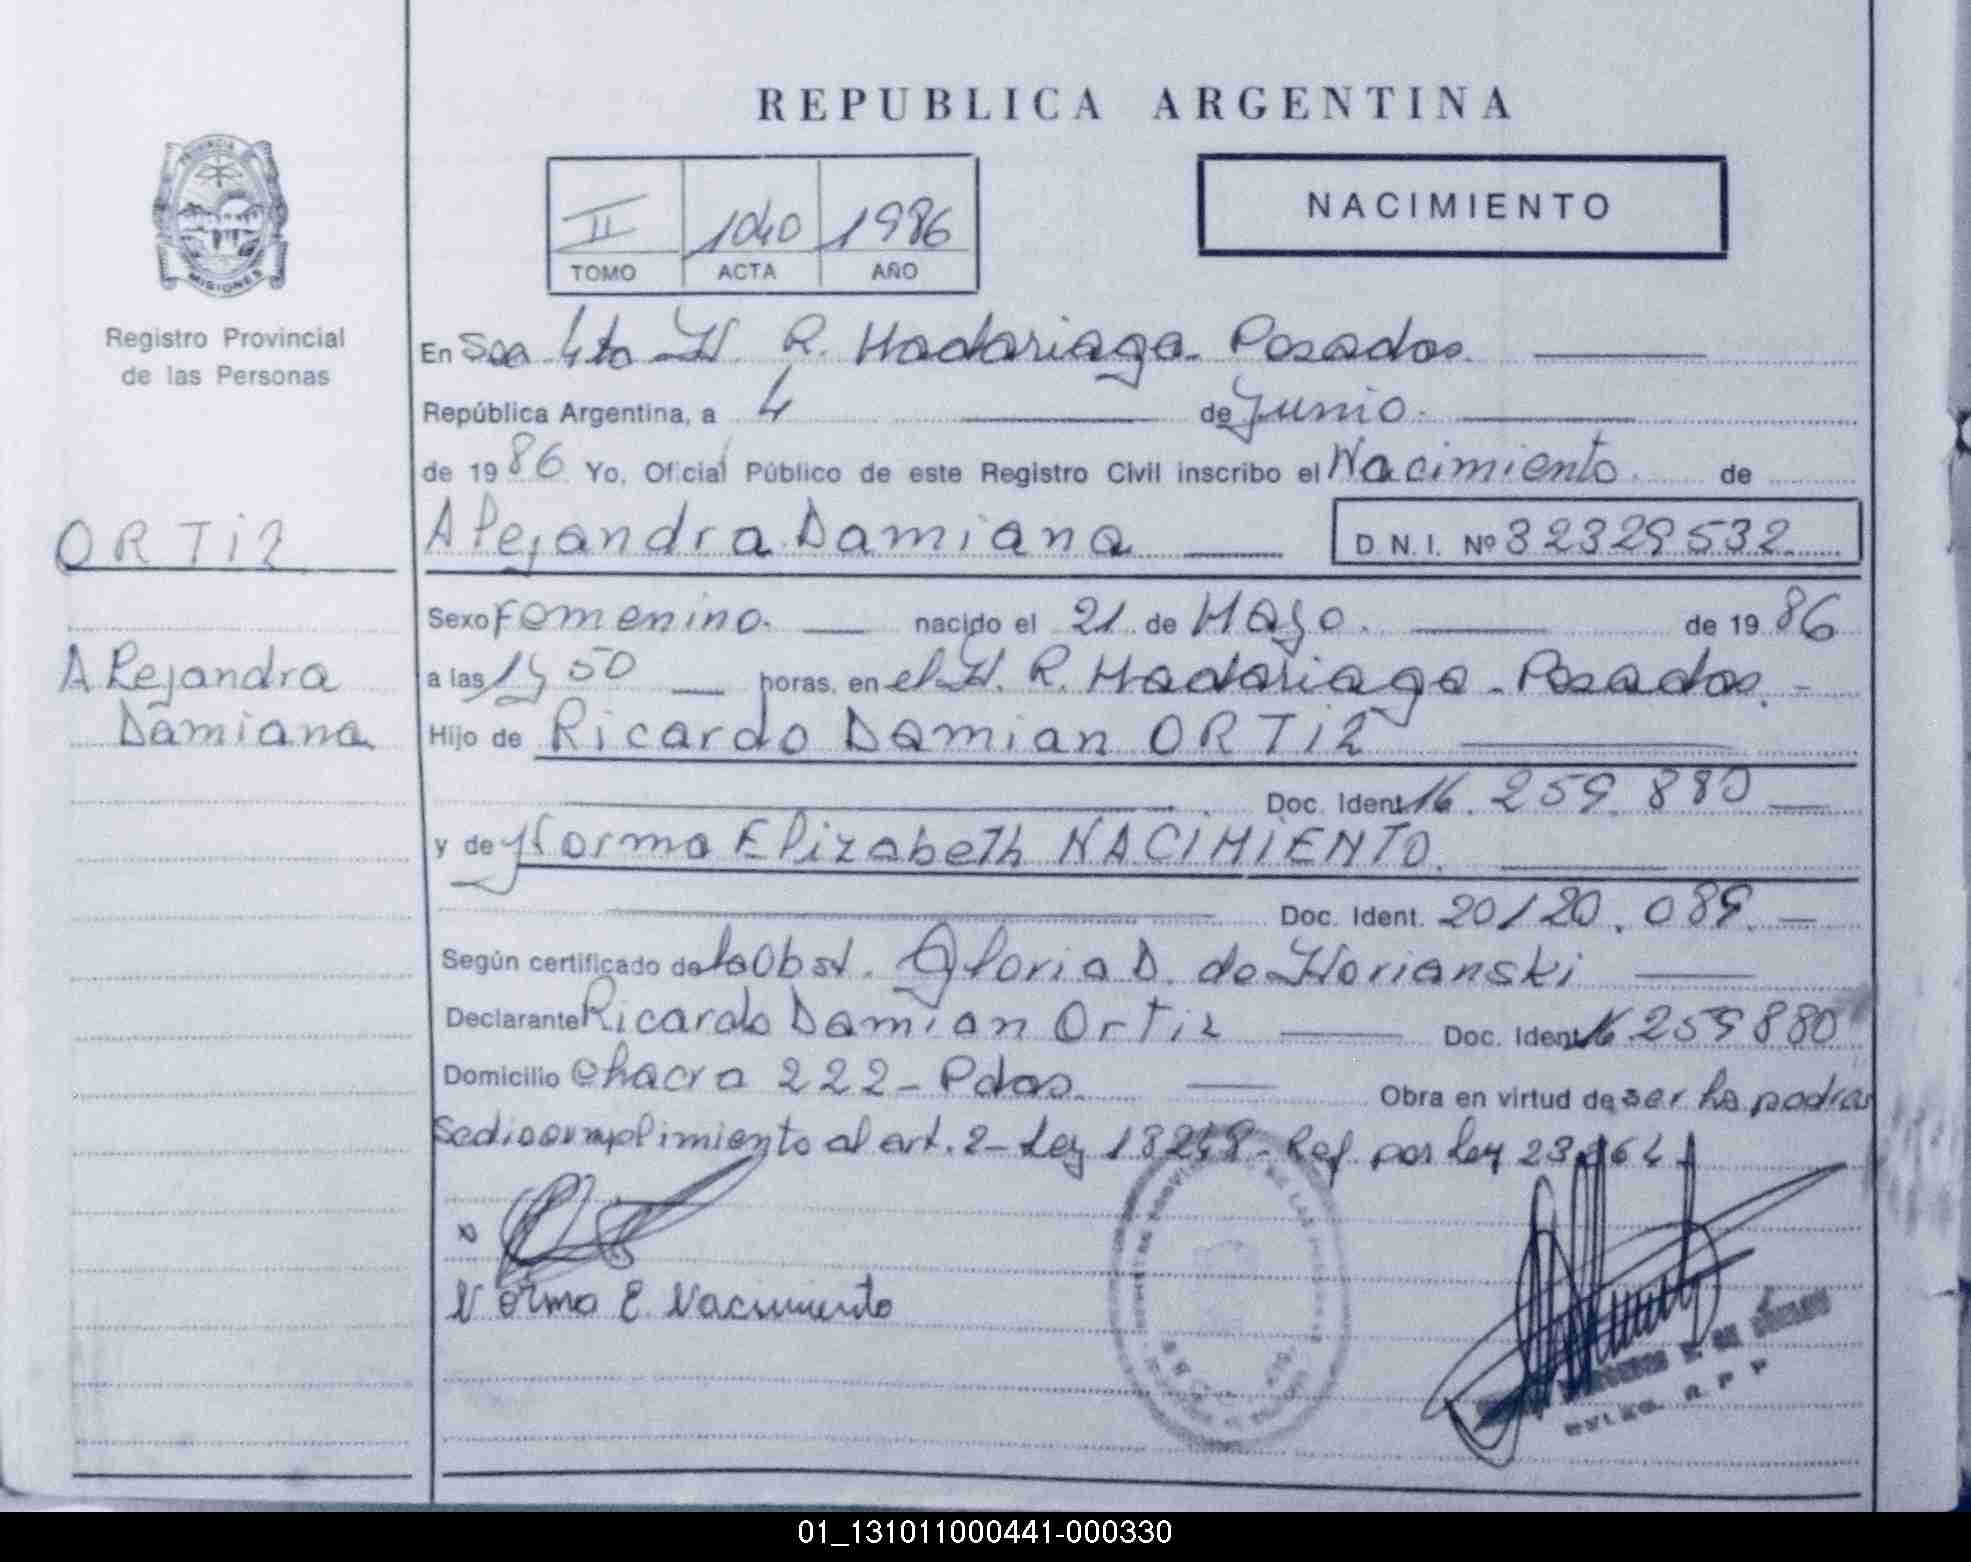 REPUBLICA ARGENTINA
PROVINCIA
MISIONES
Registro Provincial
de las Personas
II 1040 1986
TOMO ACTA AÑO
NACIMIENTO
En Sca 4ta H. R. Madariaga - Posadas.
República Argentina, a 4 de Junio.
de 1986 Yo, Oficial Público de este Registro Civil inscribo el Nacimiento. de
ORTiz
Alejandra Damiana D.N.I. Nº 32329532
Sexo Femenino. nacido el 21 de Mayo. de 1986
Alejandra
Damiana
a las 50 horas, en el H. R. Madariaga - Posadas.
Hijo de Ricardo Damian ORTiz
Doc. Ident. 16.259.880
y de Norma Elizabeth NACIMIENTO.
Doc. Ident. 20.120.089
Según certificado de la Obst. Gloria D. de Horianski
Declarante Ricardo Damian Ortiz Doc. Ident. 16.259880
Domicilio Chacra 222 - Pdas. Obra en virtud de ser los padres
Se dio cumplimiento al art. 2 - Ley 18248 - Ref. por Ley 23264
Norma E. Nacimiento
R. P. P
01_131011000441-000330